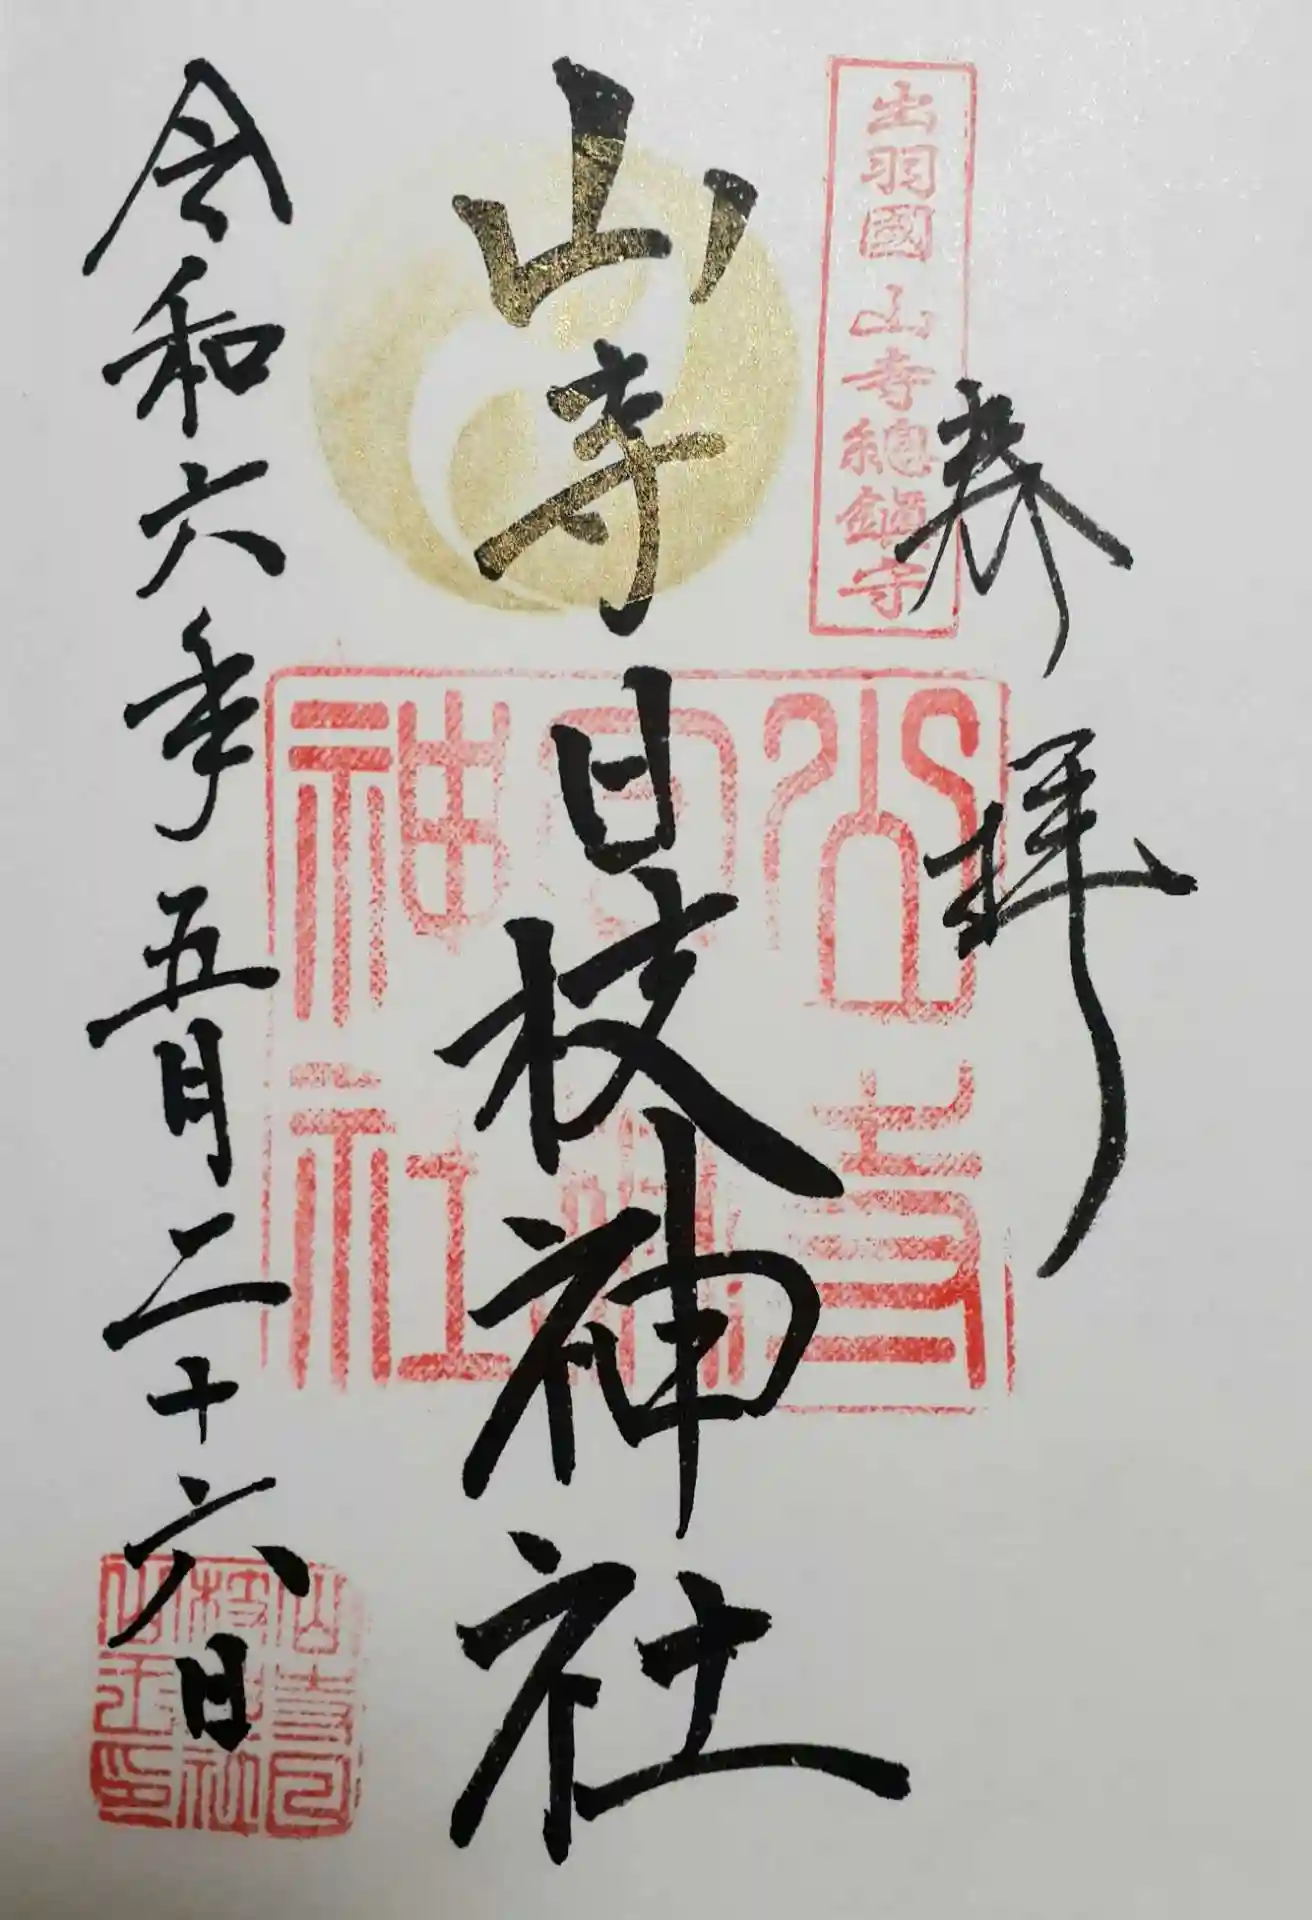 奉拝
出羽國 山寺總鎮守
山寺日枝神社
山寺
日枝
神社
令和六年五月二十六日
山寺日
枝神社
山王印